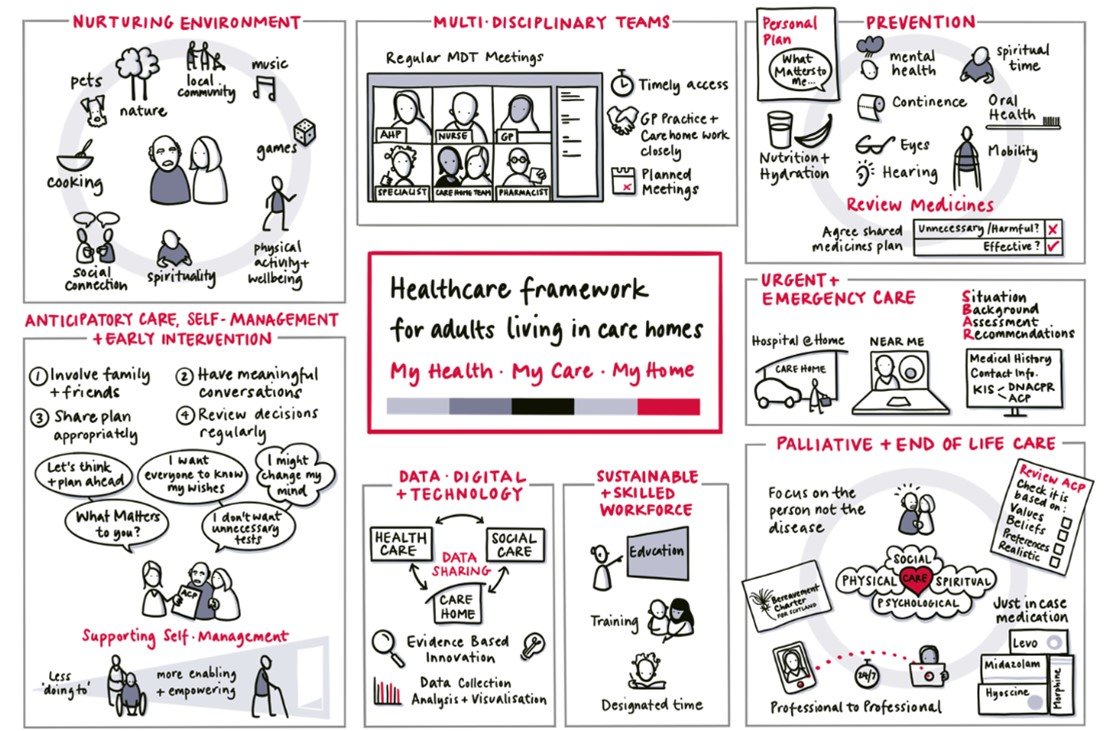 NURTURING ENVIRONMENT
pets
nature
local
community
music
games
cooking
physical
activity +
wellbeing
Social
Connection
Spirituality
MULTI·DISCIPLINARY TEAMS
Regular MDT Meetings
AHP
NURSE
GP
SPECIALIST
CARE HOME TEAM
PHARMACIST
Timely access
GP Practice +
Care home work
closely
Planned
Meetings
Personal
Plan
What
Matters to
me...
PREVENTION
mental
health
spiritual
time
Continence
Oral
Health
Nutrition +
Hydration
Eyes
Hearing
Mobility
Review Medicines
Agree shared
medicines plan
Unnecessary/Harmful?
Effective?
Healthcare framework
for adults living in care homes
My Health · My Care · My Home
ANTICIPATORY CARE, SELF-MANAGEMENT
+ EARLY INTERVENTION
1 Involve family
+ friends
2 Have meaningful
conversations
3 Share plan
appropriately
4 Review decisions
regularly
Let's think
+ plan ahead
I want
everyone to know
my wishes
I might
change my
mind
What Matters
to you?
I don't want
unnecessary
tests
ACP
Supporting Self-Management
Less
'doing to'
more enabling
+ empowering
DATA · DIGITAL
+ TECHNOLOGY
HEALTH
CARE
SOCIAL
CARE
DATA
SHARING
CARE
HOME
Evidence Based
Innovation
Data Collection
Analysis + Visualisation
SUSTAINABLE
+ SKILLED
WORKFORCE
Education
Training
Designated time
URGENT +
EMERGENCY CARE
Situation
Background
Assessment
Recommendations
Hospital @ Home
CARE HOME
NEAR ME
Medical History
Contact Info.
KIS DNACPR
ACP
PALLIATIVE + END OF LIFE CARE
Focus on the
person not the
disease
Review ACP
Check it is
based on:
Values
Beliefs
Preferences
Realistic
SOCIAL
PHYSICAL CARE SPIRITUAL
PSYCHOLOGICAL
Bereavement
Charter
FOR SCOTLAND
24/7
Professional to Professional
Just in case
medication
Levo
Midazolam
Hyoscine
Morphine